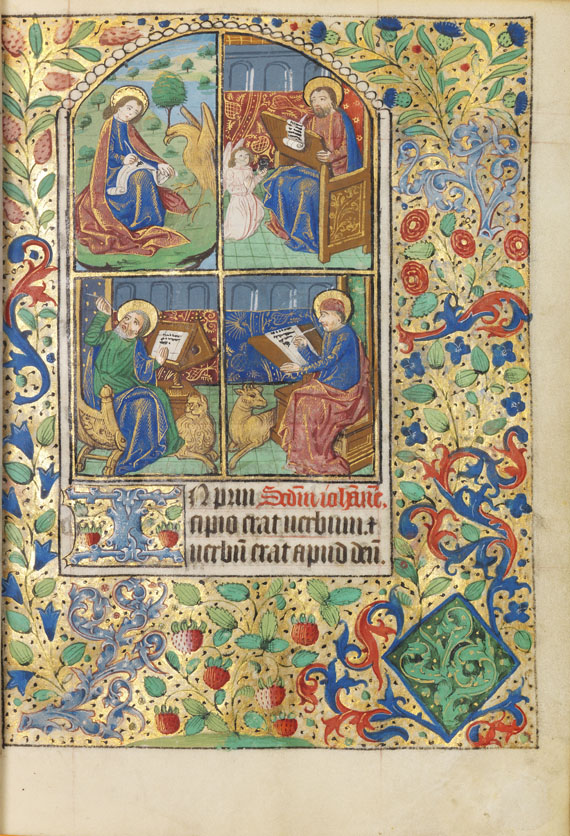 IN prin Secdm iohanē.
cipio erat uerbum ⁊
uerbū erat apud deū.